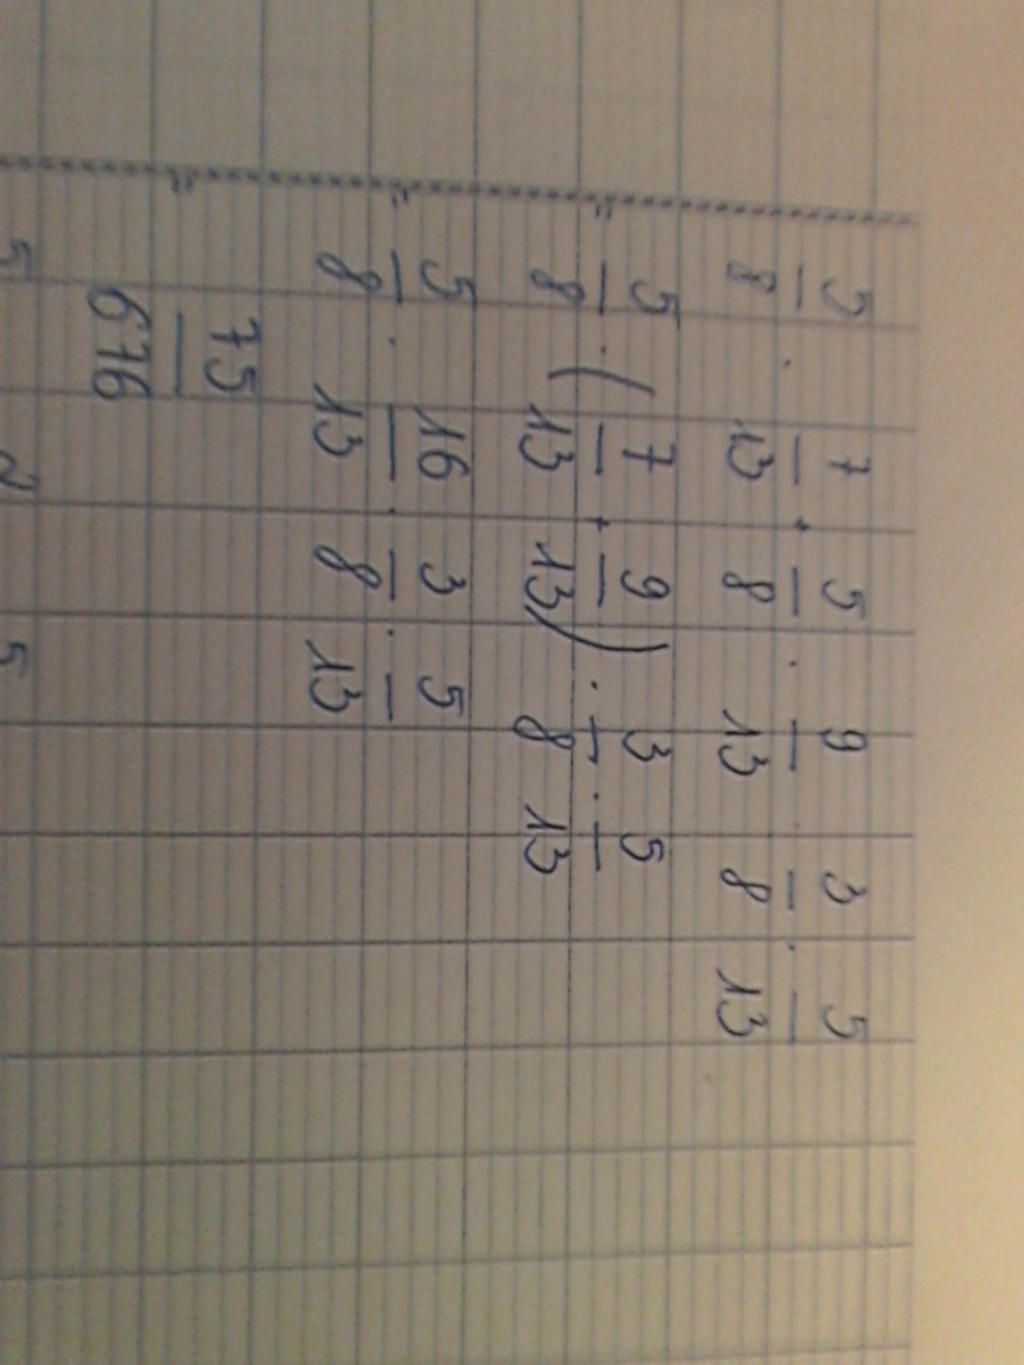 5/8 · 7/13 + 5/8 · 9/13 · 3/8 · 5/13
= 5/8 · (7/13 + 9/13) · 3/8 · 5/13
= 5/8 · 16/13 · 3/8 · 5/13
= 75/676
5 2 5